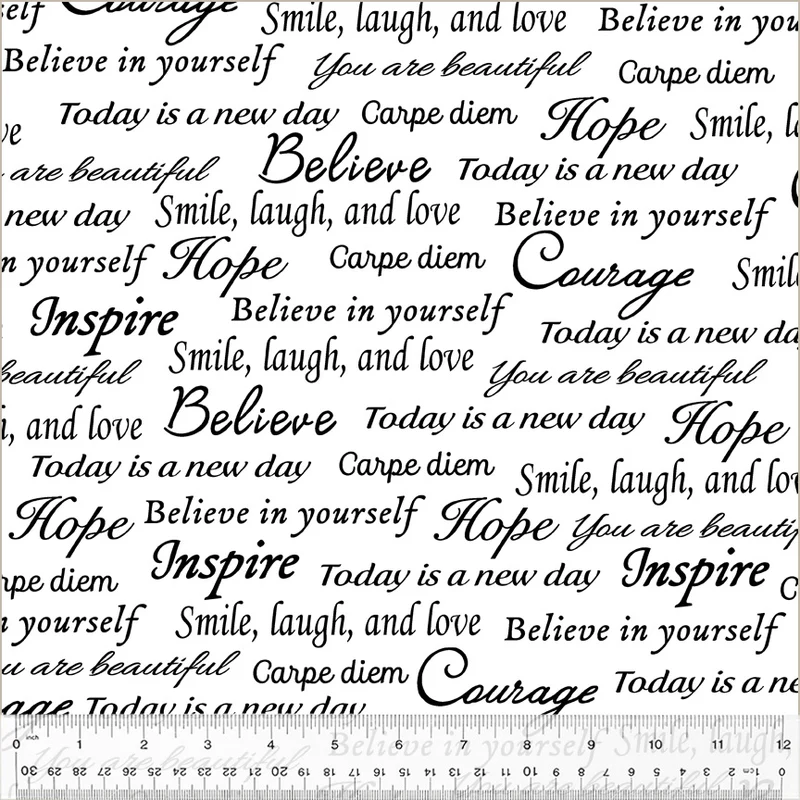 self Courage Smile, laugh, and love Believe in you
Believe in yourself You are beautiful Carpe diem
ve Today is a new day Carpe diem Hope Smile, l
are beautiful Believe Today is a new day
new day Smile, laugh, and love Believe in yourself
n yourself Hope Carpe diem Courage Smil
Inspire Believe in yourself Today is a new da
beautiful Smile, laugh, and love You are beautiful
h, and love Believe Today is a new day Hope
Today is a new day Carpe diem Smile, laugh, and lov
Hope Believe in yourself Hope You are beautif
rpe diem Inspire Today is a new day Inspire C
n yourself Smile, laugh, and love Believe in yourself
u are beautiful Carpe diem Courage Today is a ne
age Today is a new day
You are beautiful Believe in yourself Smile, laugh,
0 inch 1 2 3 4 5 6 7 8 9 10 11 12
30 29 28 27 26 25 24 23 22 21 20 19 18 17 16 15 14 13 12 11 10 9 8 7 6 5 4 3 2 1cm 0